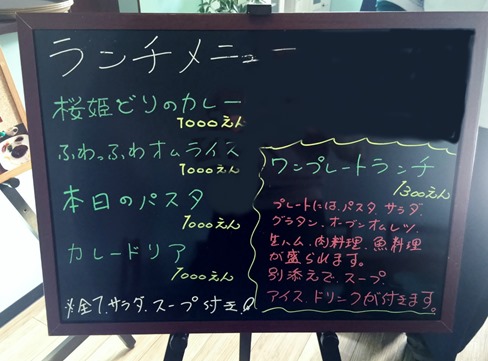 ランチメニュー
桜姫どりのカレー
1000えん
ふわっふわオムライス
1000えん
本日のパスタ
1000えん
カレードリア
1000えん
※全て、サラダ、スープ付き♪
ワンプレートランチ
1300えん
プレートには、パスタ、サラダ、
グラタン、オーブンオムレツ、
生ハム、肉料理、魚料理
が盛られます。
別添えで、スープ、
アイス、ドリンクが付きます。